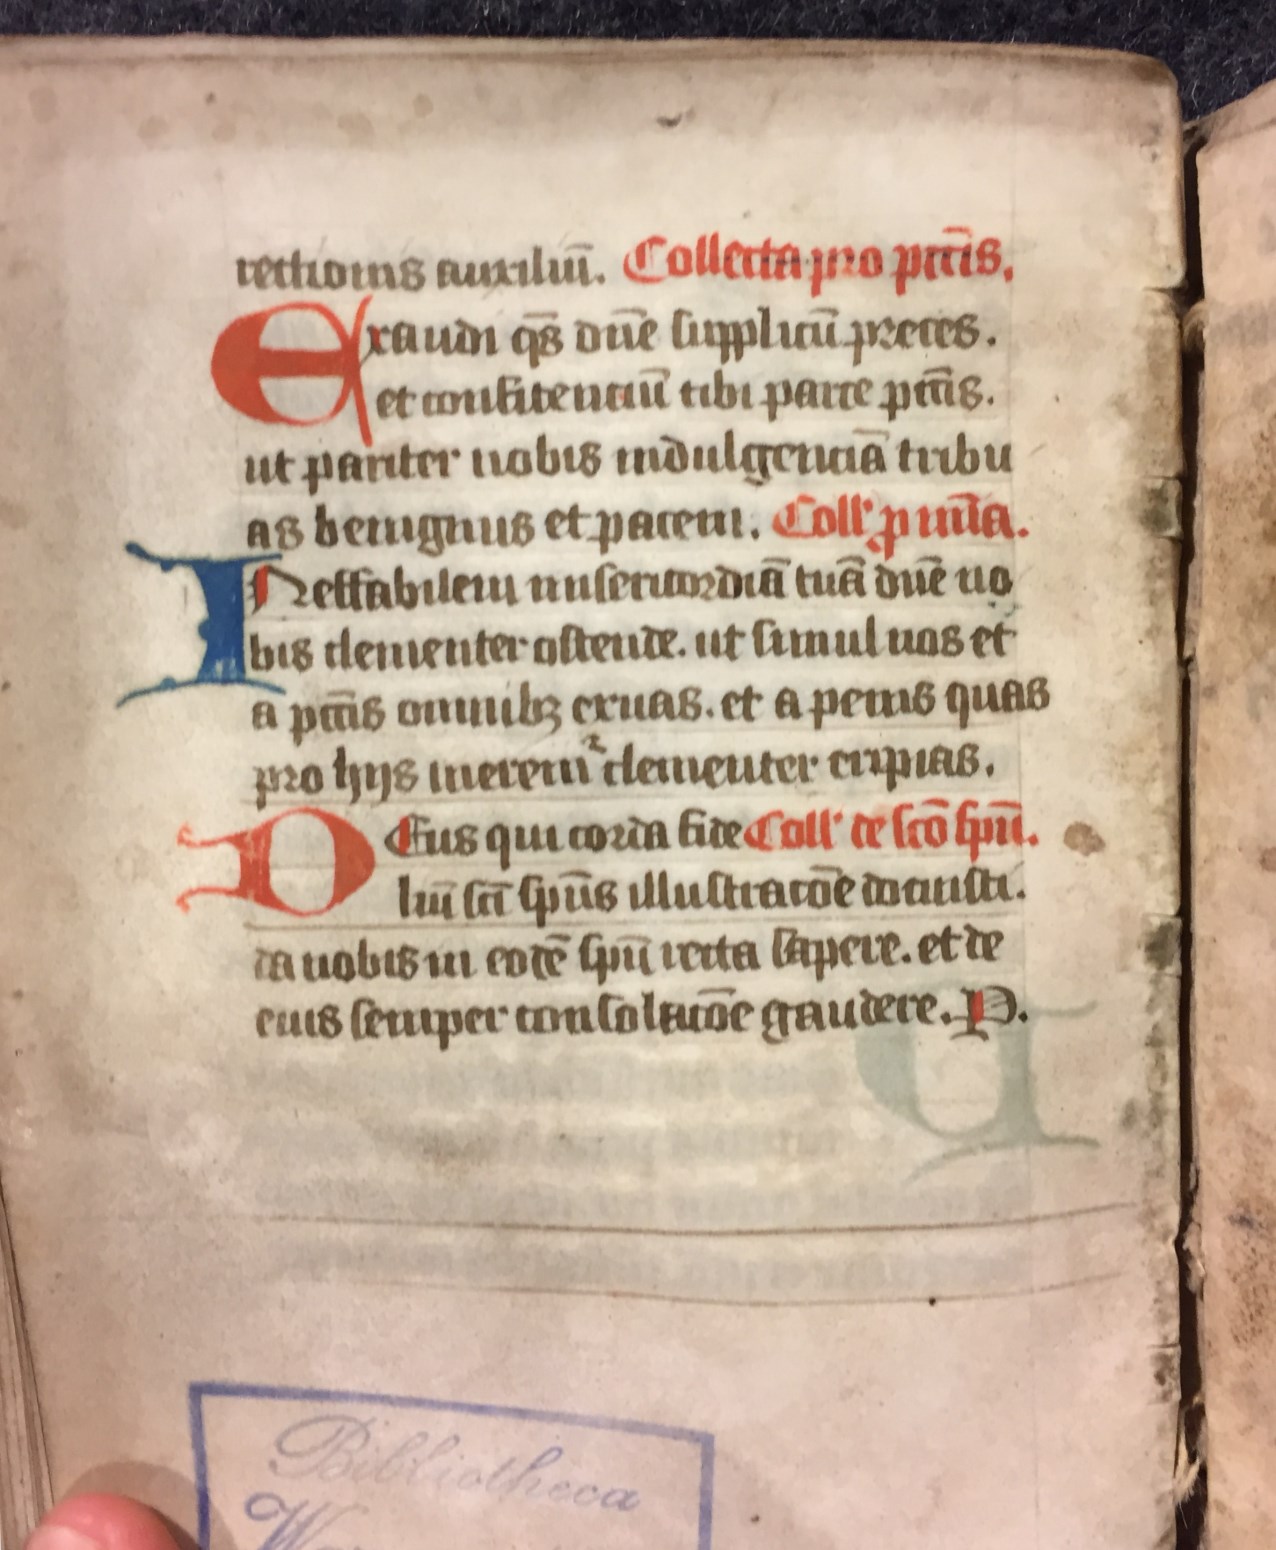 rectionis auxiliū. Collecta pro pctīs.
Exaudi qs̄ dn̄e supplicū preces.
et confitenciū tibi parce pctīs.
ut pariter nobis indulgenciā tribu
as benignus et pacem. Coll' ꝓ mīa.
Ineffabilem misericordiā tuā dn̄e no
bis clementer ostende. ut simul nos et
a pctīs omnibꝫ exuas. et a penis quas
pro hijs meremur clementer eripias.
Deus qui corda fide Coll' de sctō spū.
liū sctī spūs illustracōe docuisti.
da nobis in eodē spū recta sapere. et de
eius semper consolacōe gaudere. P.
Bibliotheca